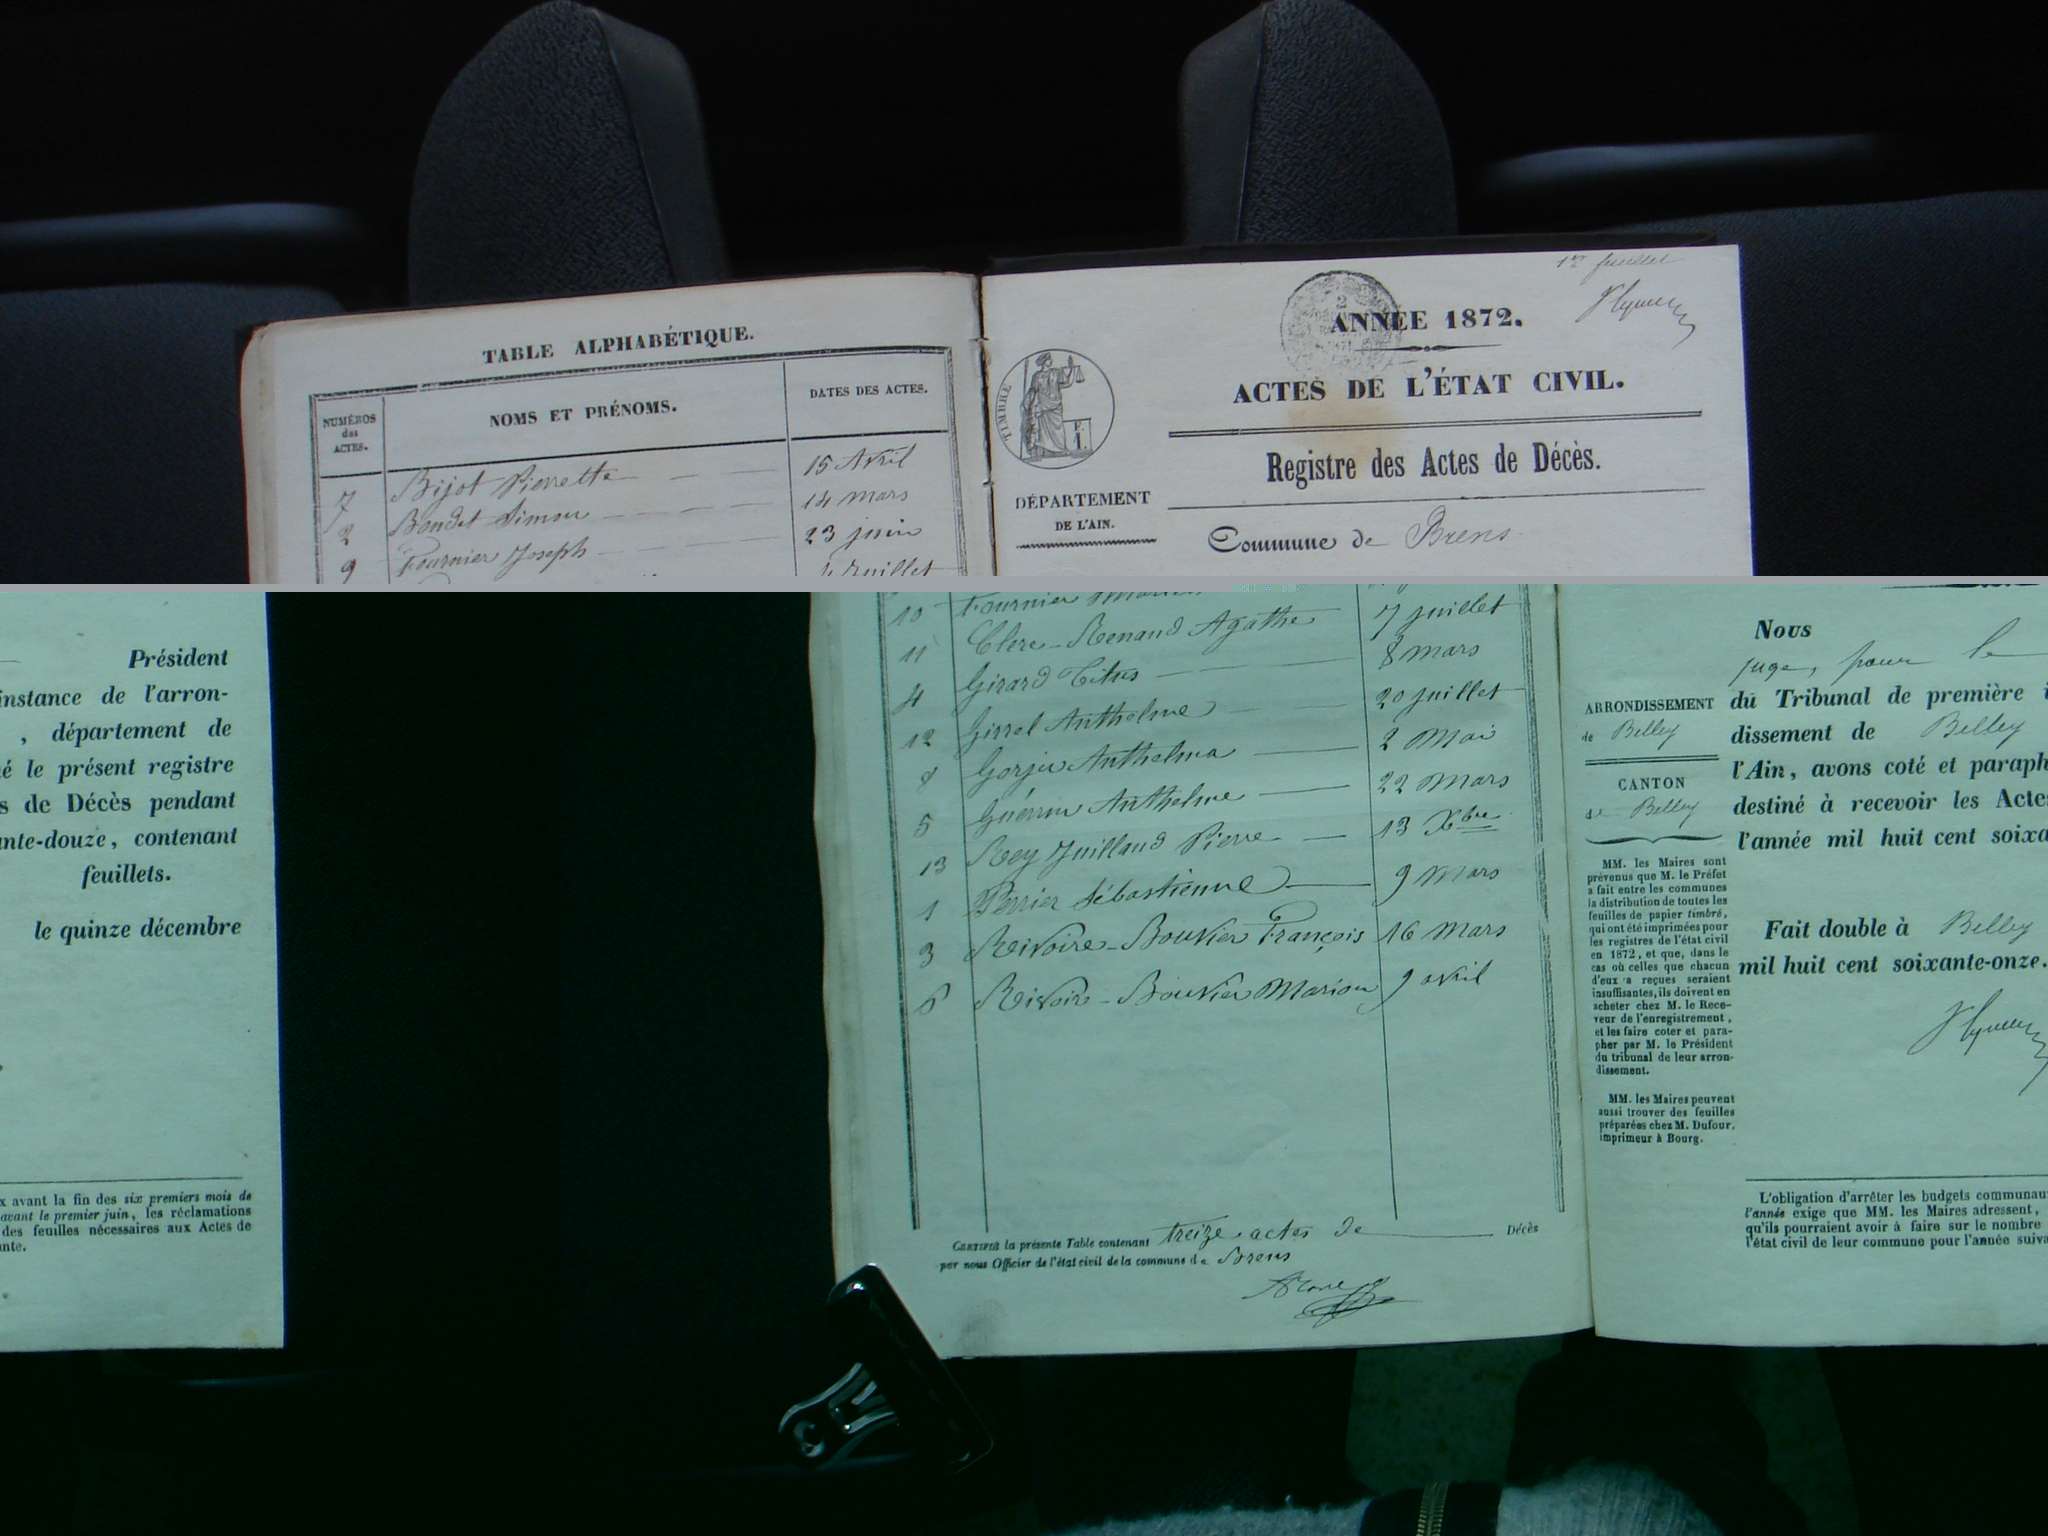 TABLE ALPHABÉTIQUE.
NUMÉROS des ACTES.
NOMS ET PRÉNOMS.
DATES DES ACTES.
7 Bijot Pierrette 15 Avril
2 Bondet Simon 14 mars
9 Fournier Joseph 23 juin
4 Juillet
10 Fournier
11 Clerc-Renaud Agathe 7 juillet
4 Girard Titus 8 mars
12 Girrel Anthelme 20 juillet
8 Gorju Anthelma 2 Mai
5 Guérrin Anthelme 22 Mars
13 Rey Juilland Pierre 13 Xbre
1 Perrier Sébastienne 9 Mars
3 Reivoire-Bouvier François 16 Mars
6 Reivoire-Bouvier Marion 9 avril
CERTIFIÉ la présente Table contenant treize actes de Décès
par nous Officier de l'état civil de la commune de Brens
1er feuillet
ANNÉE 1872.
ACTES DE L'ÉTAT CIVIL.
TIMBRE
F. 1.
Registre des Actes de Décès.
DÉPARTEMENT
DE L'AIN.
Commune de Brens
Nous
juge, pour le
ARRONDISSEMENT
de Belley
CANTON
de Belley
du Tribunal de première i
dissement de Belley
l'Ain, avons coté et paraph
destiné à recevoir les Actes
l'année mil huit cent soixa
MM. les Maires sont
prévenus que M. le Préfet
a fait entre les communes
la distribution de toutes les
feuilles de papier timbré,
qui ont été imprimées pour
les registres de l'état civil
en 1872, et que, dans le
cas où celles que chacun
d'eux a reçues seraient
insuffisantes, ils doivent en
acheter chez M. le Rece-
veur de l'enregistrement,
et les faire coter et para-
pher par M. le Président
du tribunal de leur arron-
dissement.
MM. les Maires peuvent
aussi trouver des feuilles
préparées chez M. Dufour,
imprimeur à Bourg.
Fait double à Belley
mil huit cent soixante-onze.
L'obligation d'arrêter les budgets communau
l'année exige que MM. les Maires adressent,
qu'ils pourraient avoir à faire sur le nombre
l'état civil de leur commune pour l'année suiva
Président
instance de l'arron-
, département de
é le présent registre
s de Décès pendant
nte-douze, contenant
feuillets.
le quinze décembre
x avant la fin des six premiers mois de
avant le premier juin, les réclamations
des feuilles nécessaires aux Actes de
nte.